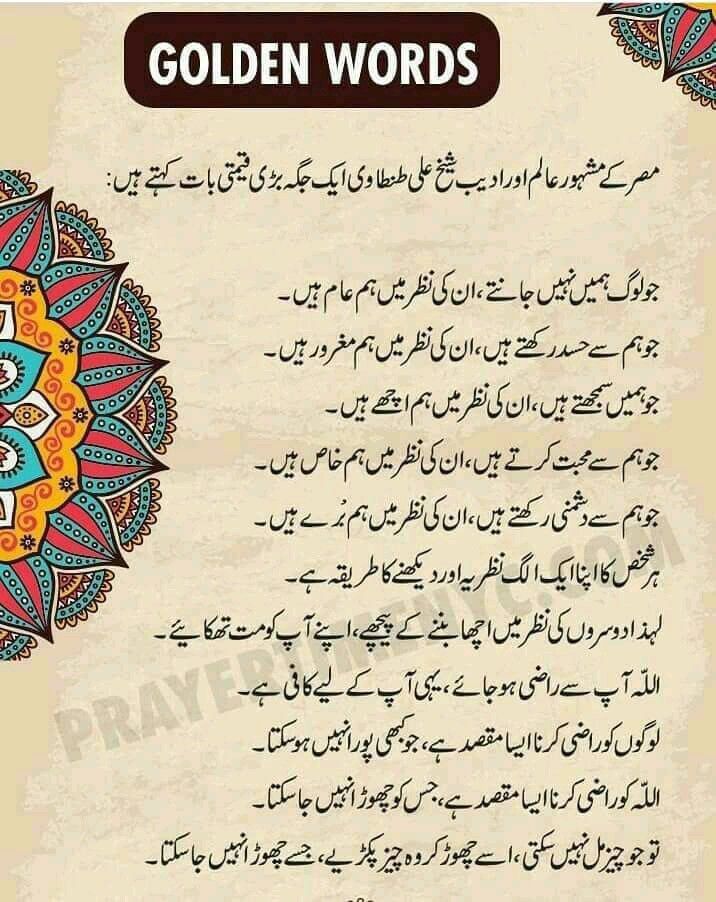 GOLDEN WORDS
مصر کے مشہور عالم اور ادیب شیخ علی طنطاوی ایک جگہ بڑی قیمتی بات کہتے ہیں:
جو لوگ ہمیں نہیں جانتے، ان کی نظر میں ہم عام ہیں۔
جو ہم سے حسد رکھتے ہیں، ان کی نظر میں ہم مغرور ہیں۔
جو ہمیں سمجھتے ہیں، ان کی نظر میں ہم اچھے ہیں۔
جو ہم سے محبت کرتے ہیں، ان کی نظر میں ہم خاص ہیں۔
جو ہم سے دشمنی رکھتے ہیں، ان کی نظر میں ہم بُرے ہیں۔
ہر شخص کا اپنا ایک الگ نظریہ اور دیکھنے کا طریقہ ہے۔
لہذا دوسروں کی نظر میں اچھا بننے کے پیچھے، اپنے آپ کو مت تھکایئے۔
اللہ آپ سے راضی ہو جائے، یہی آپ کے لیے کافی ہے۔
لوگوں کو راضی کرنا ایسا مقصد ہے، جو کبھی پورا نہیں ہو سکتا۔
اللہ کو راضی کرنا ایسا مقصد ہے، جس کو چھوڑا نہیں جا سکتا۔
تو جو چیز مل نہیں سکتی، اسے چھوڑ کر وہ چیز پکڑیے، جسے چھوڑا نہیں جا سکتا۔
PRAYERTIMENYC.COM